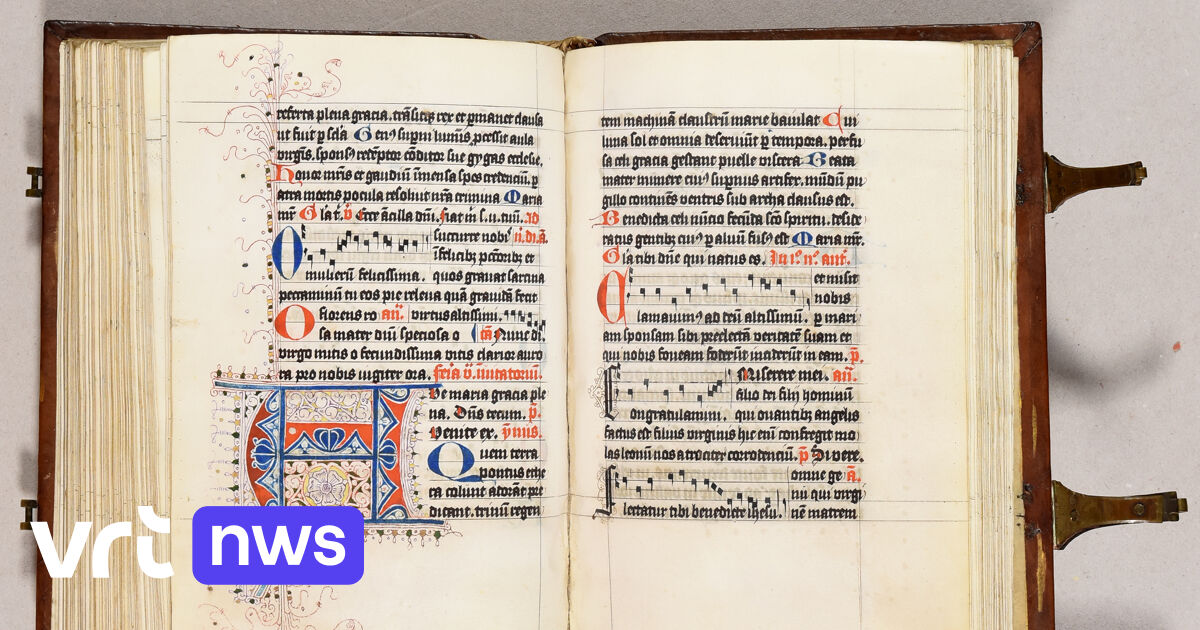 referta plena gracia. trāsitꝫ rex et ꝑmanet clausa
ut fuit ꝑ sc̄la Genꝰ suꝑni luminis ꝓcessit aula
virgīs. sponsꝰ redēptor cōditor sue gygas ecclesie.
Honor mr̄is et gaudiū īmensa spes credenciū. ꝑ
atra mortis pocula resoluit nr̄a crimina Maria
mr̄ Gl̓a t̓. v̄ Ecce ācilla dn̄i. fiat in s. v. tuū. ad
O succurre nobꝫ
īfelicibꝫ pctōribꝫ et
mulierū felicissima. quos grauat sarcina
peccaminū tu eos pie releua quā grauidā fecit
O florens ro an̄. virtus altissimi.
sa mater dn̄i speciosa o Nunc di.
virgo mitis o fecundissima vitis clarior auro
ra pro nobis iugiter ora. feria
Ave maria gracia ple
na. Dn̄s tecum. p̄.
Venite ex. ymnus.
Quem terra
pontus ethe
ra colunt adorāt pre
dicant. trinū regen
tem machinā claustrū marie baiulat Cui
luna sol et omnia deseruiūt ꝑ tempora. perfu
sa celi gracia gestant puelle viscera. Beata
mater munere cuiꝰ supnus artifex. mūdū pu
gillo continēs ventris sub archa clausus est.
Benedicta celi nūcio fecūda scō spiritu. deside
ratus gentibꝫ cuiꝰ ꝑ aluum fusꝰ est Maria mr̄.
Gl̓a tibi dn̄e qui natus es. In
C et misit
nobis
lamauimꝰ ad teū altissimū. ꝑ mari
am sponsam sibi preelectā veritatē suam et
qui nobis foueam foderūt inciderūt in eam. p̄.
C Miserere mei. an̄.
filio dei filij hominū
ongratulamini. qui ouantibꝫ angelis
factus est filius virginis hic enī confregit mo
las leonū nos atrociter corrodenciū. p̄ Dixere.
omne ge a̅.
nū qui virgi
lectatur tibi benedicte ihesu. nē matrem
vrt nws